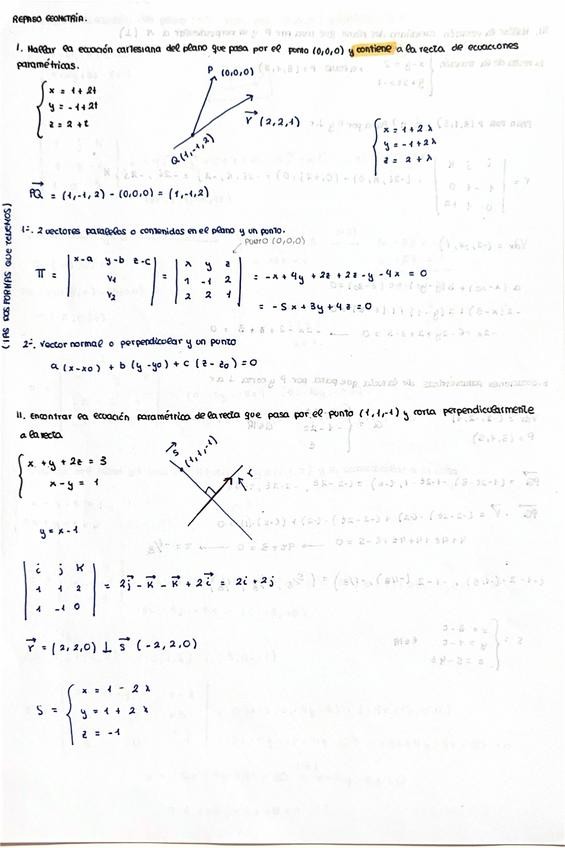 REPASO GEOMETRÍA.
I. Hallar la ecuación cartesiana del plano que pasa por el punto (0,0,0) y contiene a la recta de ecuaciones
paramétricas.
P (0,0,0)
x = 1 + 2t
y = -1 + 2t
z = 2 + t
r (2,2,1)
Q (1,-1,2)
x = 1 + 2 λ
y = -1 + 2λ
z = 2 + λ
PQ = (1,-1,2) - (0,0,0) = (1,-1,2)
(LAS DOS FORMAS QUE TENEMOS)
1-. 2 vectores paralelos o contenidos en el plano y un punto.
punto (0,0,0)
Π = | x-a y-b z-c | = | x y z | = -x + 4y + 2z + 2z - y - 4x = 0
v1 1 -1 2
v2 2 2 1 = -5x + 3y + 4z = 0
2-. Vector normal o perpendicular y un punto
a (x-x0) + b (y-y0) + c (z-z0) = 0
II. Encontrar la ecuación paramétrica de la recta que pasa por el punto (1,1,-1) y corta perpendicularmente
a la recta
s (1,1,-1)
x + y + 2z = 3
x - y = 1
r
y = x - 1
| i j k |
| 1 1 2 | = 2j - k - k + 2i = 2i + 2j
| 1 -1 0 |
r = (2,2,0) ⊥ s (-2,2,0)
x = 1 - 2 λ
S = y = 1 + 2 λ
z = -1